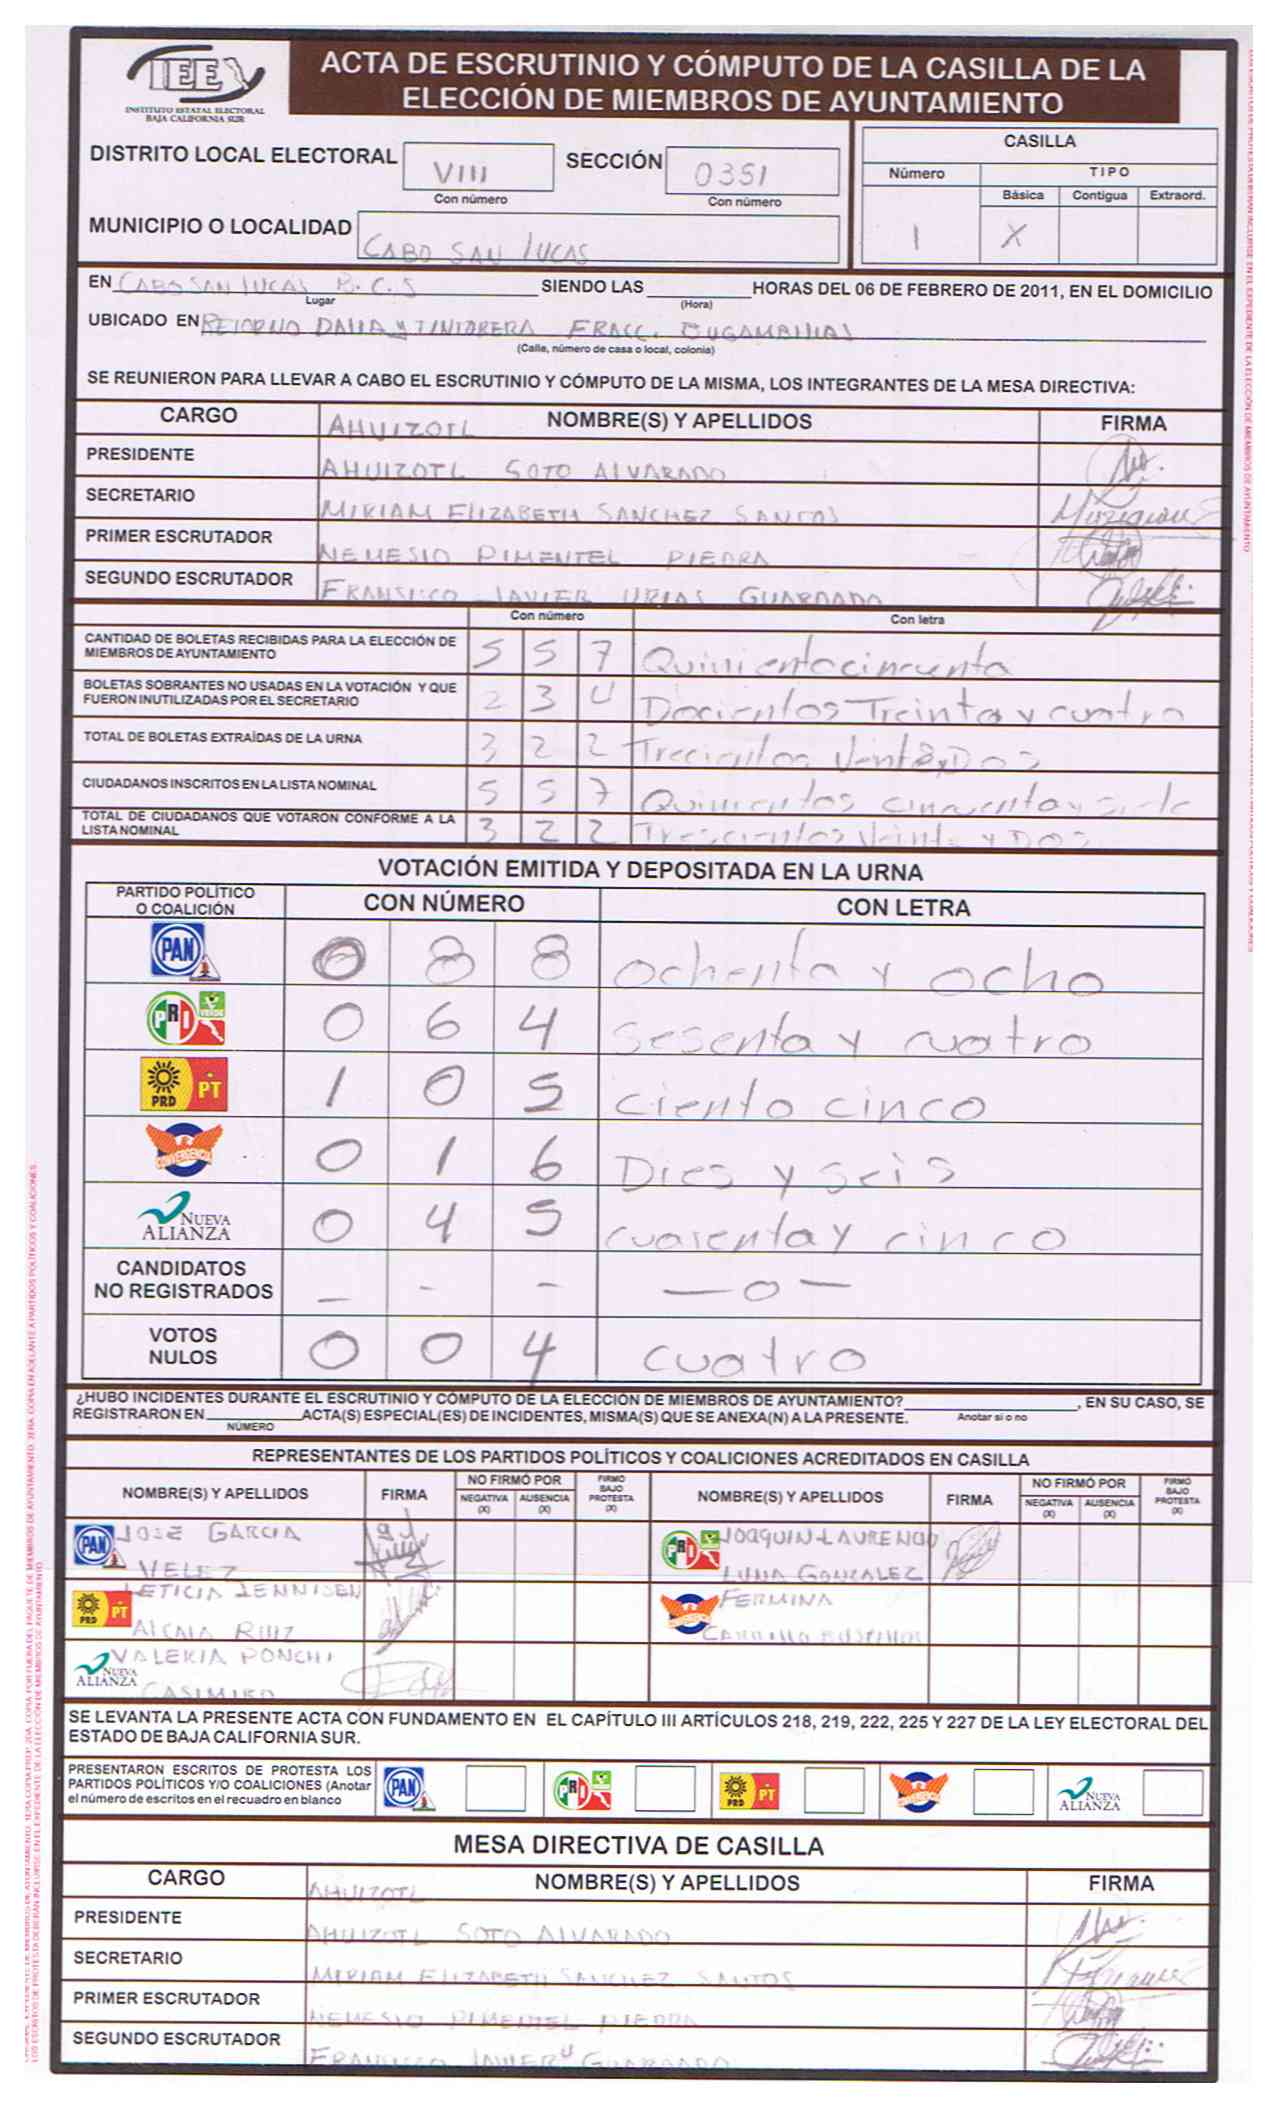 IEE
INSTITUTO ESTATAL ELECTORAL
BAJA CALIFORNIA SUR
ACTA DE ESCRUTINIO Y CÓMPUTO DE LA CASILLA DE LA
ELECCIÓN DE MIEMBROS DE AYUNTAMIENTO
DISTRITO LOCAL ELECTORAL VIII SECCIÓN 0351
Con número Con número
CASILLA
Número TIPO
Básica Contigua Extraord.
1 X
MUNICIPIO O LOCALIDAD CABO SAN LUCAS
EN CABO SAN LUCAS B.C.S SIENDO LAS HORAS DEL 06 DE FEBRERO DE 2011, EN EL DOMICILIO
Lugar (Hora)
UBICADO EN RETORNO DALIA Y TINTORERA FRACC. BUGAMBILIAS
(Calle, número de casa o local, colonia)
SE REUNIERON PARA LLEVAR A CABO EL ESCRUTINIO Y CÓMPUTO DE LA MISMA, LOS INTEGRANTES DE LA MESA DIRECTIVA:
CARGO NOMBRE(S) Y APELLIDOS FIRMA
AHUIZOTL
PRESIDENTE AHUIZOTL SOTO ALVARADO
SECRETARIO MIRIAM ELIZABETH SANCHEZ SANTOS
PRIMER ESCRUTADOR NEMESIO PIMENTEL PIEDRA
SEGUNDO ESCRUTADOR FRANSISCO JAVIER URIAS GUARDADO
Con número Con letra
CANTIDAD DE BOLETAS RECIBIDAS PARA LA ELECCIÓN DE
MIEMBROS DE AYUNTAMIENTO 5 5 7 Quinientocincuenta
BOLETAS SOBRANTES NO USADAS EN LA VOTACIÓN Y QUE
FUERON INUTILIZADAS POR EL SECRETARIO 2 3 4 Docientos Treinta y cuatro
TOTAL DE BOLETAS EXTRAÍDAS DE LA URNA 3 2 2 Trecientos
CIUDADANOS INSCRITOS EN LA LISTA NOMINAL 5 5 7 Quinientos cincuenta y siete
TOTAL DE CIUDADANOS QUE VOTARON CONFORME A LA
LISTA NOMINAL 3 2 2 Trescientos Veinte y DOS
VOTACIÓN EMITIDA Y DEPOSITADA EN LA URNA
PARTIDO POLÍTICO
O COALICIÓN CON NÚMERO CON LETRA
PAN 0 8 8 ochenta y ocho
PRI VERDE 0 6 4 sesenta y cuatro
PRD PT 1 0 5 ciento cinco
CONVERGENCIA 0 1 6 Dies y seis
NUEVA ALIANZA 0 4 5 cuarenta y cinco
CANDIDATOS
NO REGISTRADOS - - - —o—
VOTOS
NULOS 0 0 4 cuatro
¿HUBO INCIDENTES DURANTE EL ESCRUTINIO Y CÓMPUTO DE LA ELECCIÓN DE MIEMBROS DE AYUNTAMIENTO? , EN SU CASO, SE
REGISTRARON EN ACTA(S) ESPECIAL(ES) DE INCIDENTES, MISMA(S) QUE SE ANEXA(N) A LA PRESENTE. Anotar si o no
NÚMERO
REPRESENTANTES DE LOS PARTIDOS POLÍTICOS Y COALICIONES ACREDITADOS EN CASILLA
NOMBRE(S) Y APELLIDOS FIRMA NO FIRMÓ POR NEGATIVA (X) AUSENCIA (X) FIRMÓ BAJO PROTESTA (X) NOMBRE(S) Y APELLIDOS FIRMA NO FIRMÓ POR NEGATIVA (X) AUSENCIA (X) FIRMÓ BAJO PROTESTA (X)
PAN JOSE GARCIA PRI JOAQUIN LAURENCIO
VELEZ LUNA GONCALEZ
PRD PT LETICIA JENNISEN FERMINA
ALCALA RUIZ
NUEVA ALIANZA VALERIA PONCHI
CASIMIRO
SE LEVANTA LA PRESENTE ACTA CON FUNDAMENTO EN EL CAPÍTULO III ARTÍCULOS 218, 219, 222, 225 Y 227 DE LA LEY ELECTORAL DEL
ESTADO DE BAJA CALIFORNIA SUR.
PRESENTARON ESCRITOS DE PROTESTA LOS
PARTIDOS POLÍTICOS Y/O COALICIONES (Anotar
el número de escritos en el recuadro en blanco
PAN PRI PRD PT NUEVA ALIANZA
MESA DIRECTIVA DE CASILLA
CARGO NOMBRE(S) Y APELLIDOS FIRMA
AHUIZOTL
PRESIDENTE AHUIZOTL SOTO ALVARADO
SECRETARIO MIRIAM ELIZABETH SANCHEZ SANTOS
PRIMER ESCRUTADOR NEMESIO PIMENTEL PIEDRA
SEGUNDO ESCRUTADOR FRANCISCO JAVIER U GUARDADO